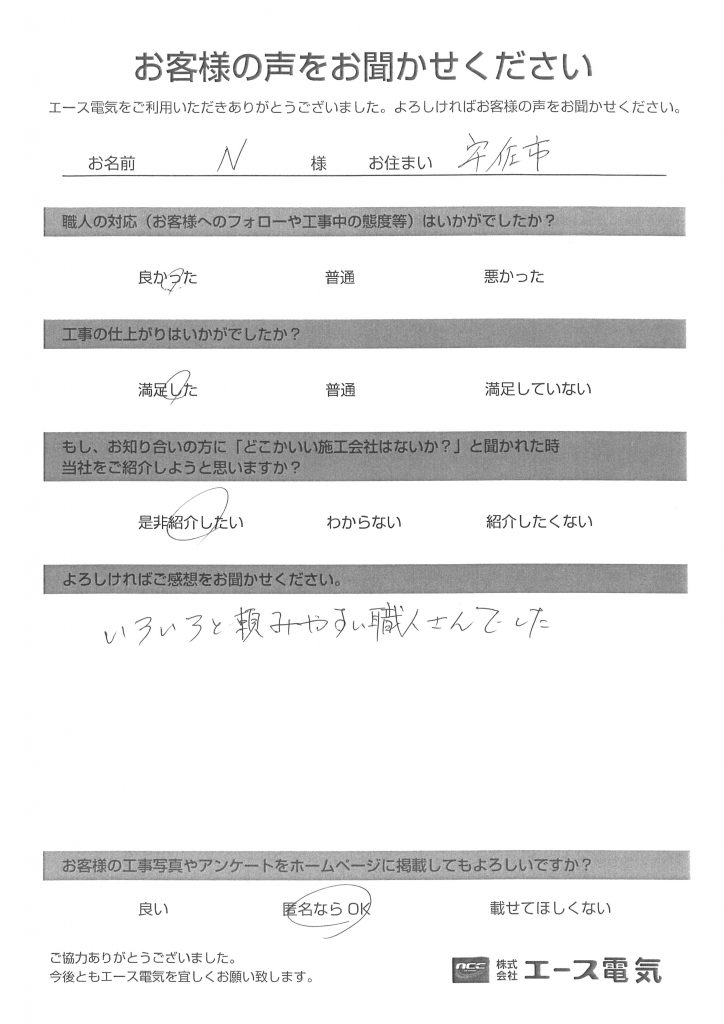 お客様の声をお聞かせください
エース電気をご利用いただきありがとうございました。よろしければお客様の声をお聞かせください。
お名前 N 様 お住まい 宇佐市
職人の対応（お客様へのフォローや工事中の態度等）はいかがでしたか？
良かった 普通 悪かった
工事の仕上がりはいかがでしたか？
満足した 普通 満足していない
もし、お知り合いの方に「どこかいい施工会社はないか？」と聞かれた時
当社をご紹介しようと思いますか？
是非紹介したい わからない 紹介したくない
よろしければご感想をお聞かせください。
いろいろと頼みやすい職人さんでした
お客様の工事写真やアンケートをホームページに掲載してもよろしいですか？
良い 匿名なら OK 載せてほしくない
ご協力ありがとうございました。
今後ともエース電気を宜しくお願い致します。
株式会社 エース電気